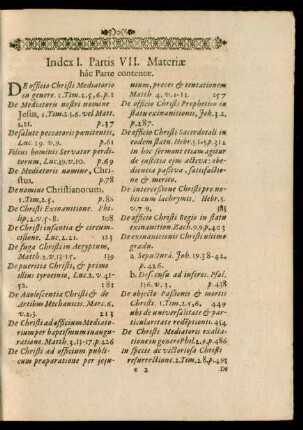 Index I. Partis VII. Materiæ
hâc Parte contentæ.
DE officio Christi Mediatorio
in genere. 1. Tim. 2. 5, 6. p. 1
De Mediatoris nostri nomine
Jesus, 1 Tim. 2. 5. 6. vel Matt.
1. 21. p. 37
De salute peccatoris pœnitentis,
Luc. 19. v. 9. p. 61
Filius hominis Servator perdi-
torum, Luc. 19. v. 10. p. 69
De Mediatoris nomine, Chri-
stus, p. 78
De nomine Christianorum,
1. Tim. 2. 5, p. 86
De Christi Exinanitione. Phi-
lip. 2. v. 5-8. 108
De Christi infantia & circum-
cisione, Luc. 2. 21. 123
De fuga Christi in Ægyptum,
Matth. 2. v. 13-15. 139
De pueritia Christi, & primo
illius tyrocinio, Luc. 2. v. 41-
52. 181
De Adolescentia Christi & de
Artibus Mechanicis. Mar. 6.
v. 2. 3. 213
De Christi ad officium Mediato-
rium per baptismum inaugu-
ratione. Matth. 3. 13-17. p. 226
De Christi ad officium publi-
cum præparatione per jeju-
nium, preces & tentationem
Matth 4. v. 1-11. 257
De officio Christi Prophetico in
statu exinanitionis, Joh. 3. 2.
p. 287.
De officio Christi Sacerdotali in
eodem statu. Hebr. 5. 1-5. p. 312
in hoc sermone etiam agitur
de justitia ejus activa: obe-
dientia passiva, satisfactio-
ne & merito.
De intercessione Christi pro no-
bis cum lachrymis, Hebr. 5.
v. 7. 9. 385
De officio Christi Regio in statu
exinanition. Zach. 9. 9. p. 403
De exinanitionis Christi ultimo
gradu.
a Sepulturâ. Joh. 19. 38-42,
p. 426.
b. Descensu ad inferos. Psal.
116. v. 3. p. 438
De objecto Passionis & mortis
Christi. 1. Tim. 2. 5, 6, 449
ubi de universalitate & par-
ticularitate redemptionis. 454
De Christi Mediatoris exalta-
tione in genere Phil. 2. 9. p. 486
in specie de victoriosa Christi
resurrectione. 2 Tim. 2. 8. p. 493
e 2 De